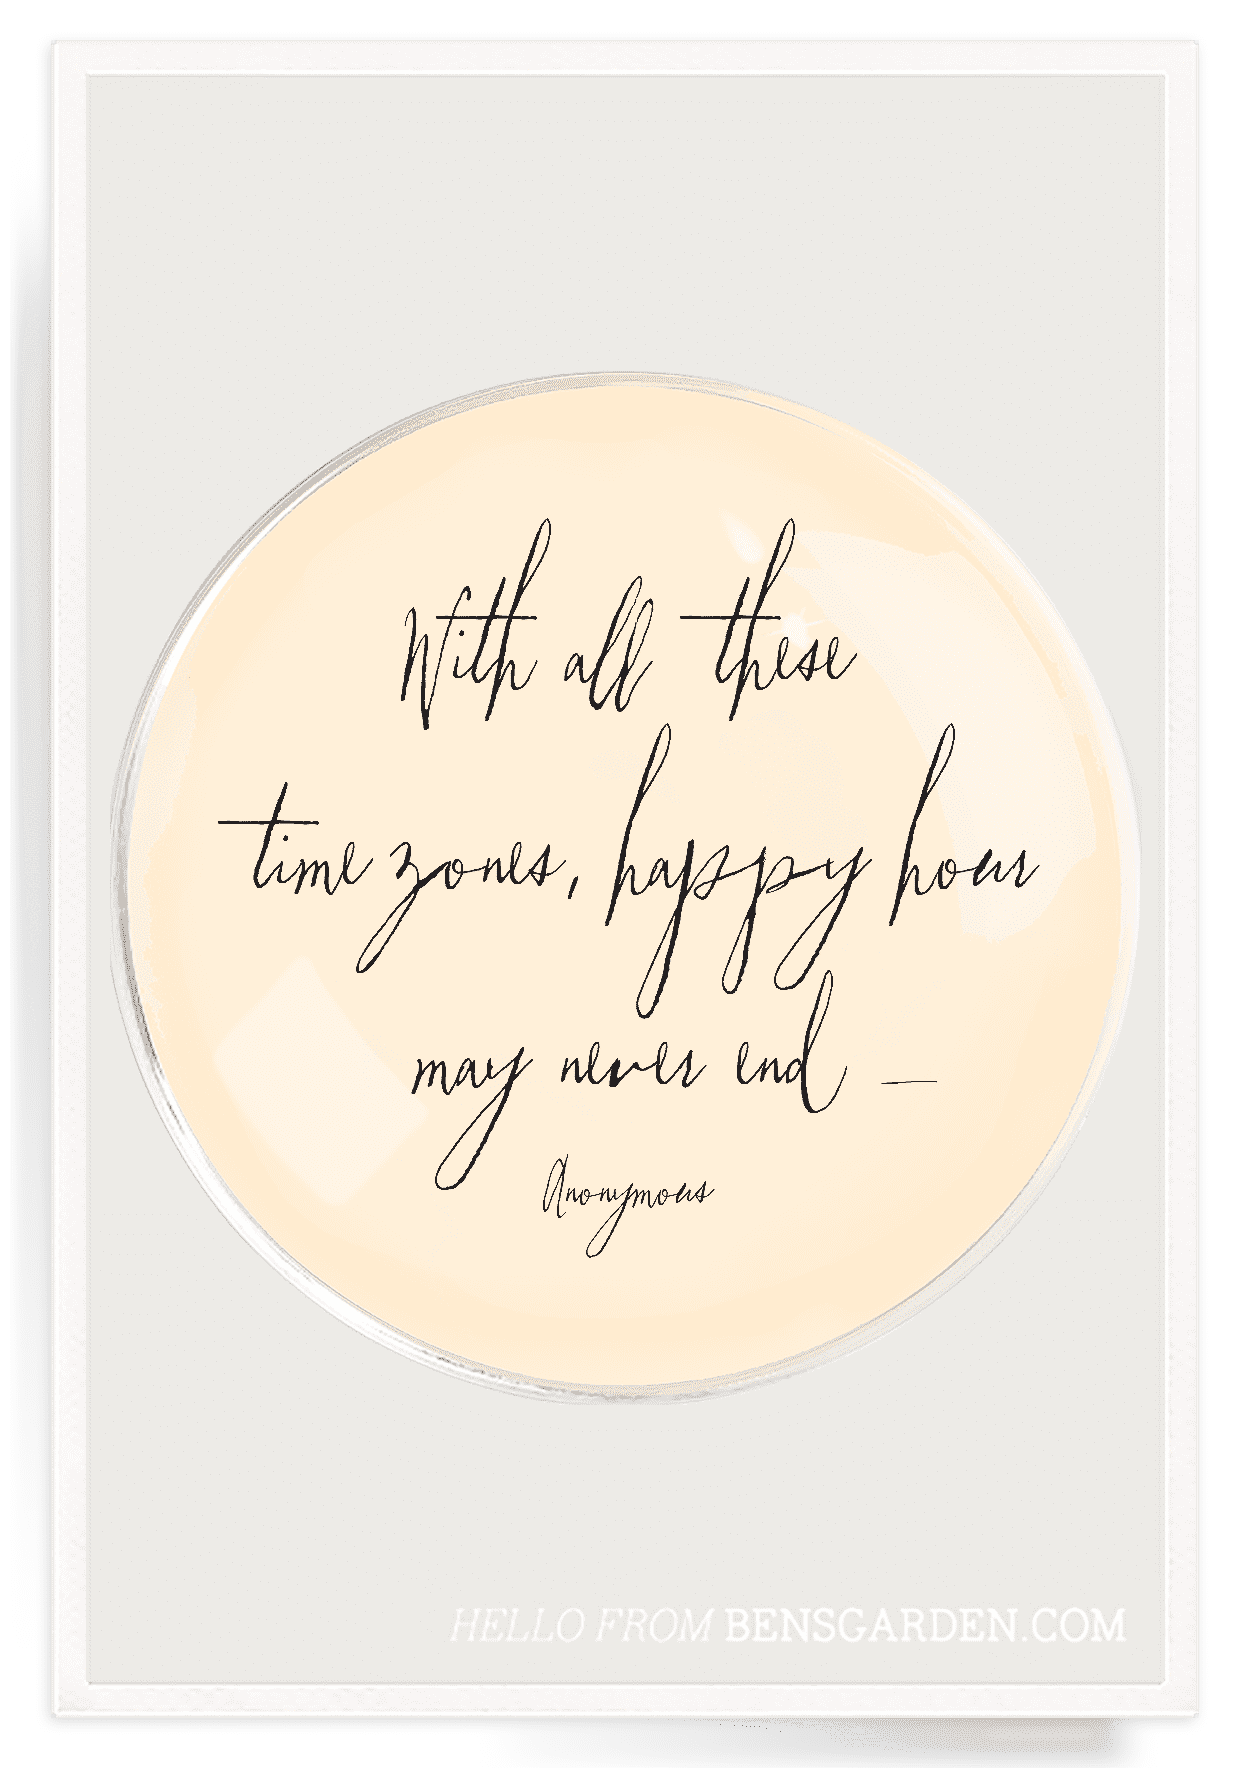 With all these
time zones, happy hour
may never end —
Anonymous
HELLO FROM BENSGARDEN.COM